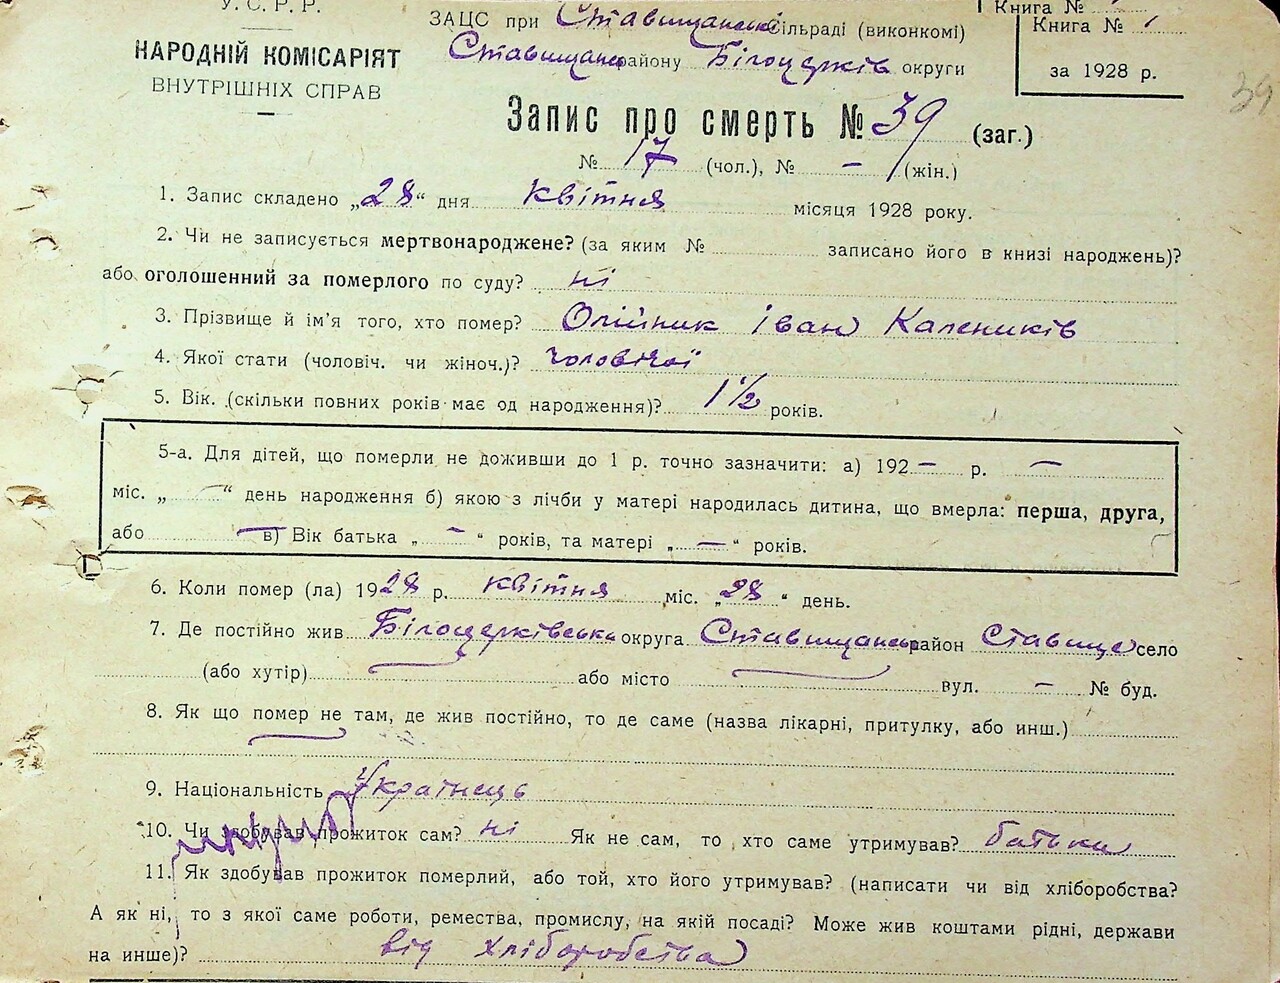 У. С. Р. Р.
НАРОДНІЙ КОМІСАРІЯТ
ВНУТРІШНІХ СПРАВ
ЗАЦС при Ставищанські сільраді (виконкомі)
Ставищансь району Білоцерків округи
Книга №
Книга № 1
за 1928 р.
39
Запис про смерть № 39 (заг.)
№ 17 (чол.), № – (жін.)
1. Запис складено „28“ дня квітня місяця 1928 року.
2. Чи не записується мертвонароджене? (за яким № записано його в книзі народжень)?
або оголошенний за померлого по суду? ні
3. Прізвище й ім'я того, хто помер? Олійник Іван Калеників
4. Якої стати (чоловіч. чи жіноч.)? чоловічої
5. Вік. (скільки повних років має од народження)? 1 1/2 років.
5-а. Для дітей, що померли не доживши до 1 р. точно зазначити: а) 192 – р. –
міс. „ – “ день народження б) якою з лічби у матері народилась дитина, що вмерла: перша, друга,
або – в) Вік батька „ – “ років, та матері „ – “ років.
6. Коли помер (ла) 1928 р. квітня міс. „28“ день.
7. Де постійно жив Білоцерківська округа Ставищансь район Ставище село
(або хутір) або місто вул. – № буд.
8. Як що помер не там, де жив постійно, то де саме (назва лікарні, притулку, або инш.)
9. Національність Українець
10. Чи здобував прожиток сам? ні Як не сам, то хто саме утримував? батьки
11. Як здобував прожиток померлий, або той, хто його утримував? (написати чи від хліборобства?
А як ні, то з якої саме роботи, ремества, промислу, на якій посаді? Може жив коштами рідні, держави
на инше)? від хліборобства